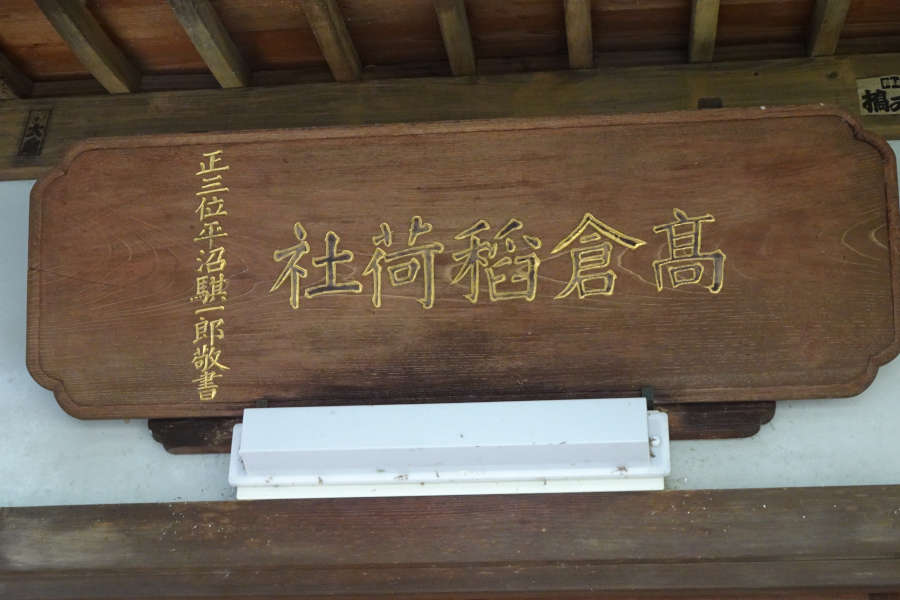 髙倉稲荷社
正三位平沼騏一郎敬書